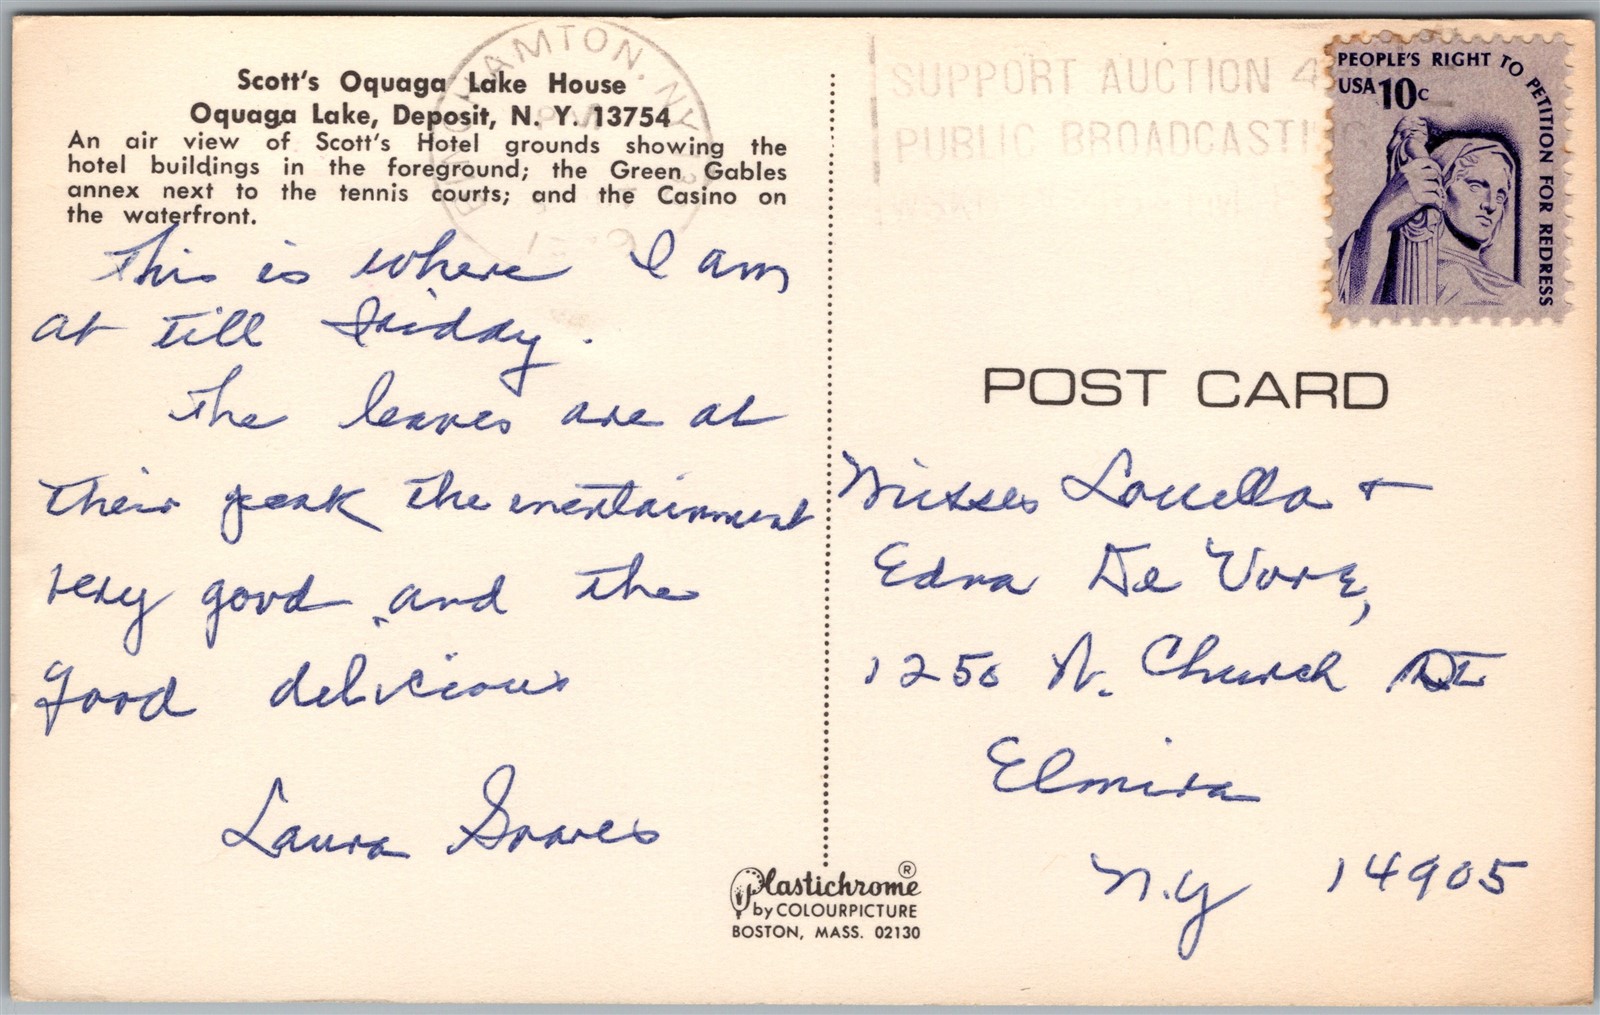 Scott's Oquaga Lake House
Oquaga Lake, Deposit, N. Y. 13754
An air view of Scott's Hotel grounds showing the
hotel buildings in the foreground; the Green Gables
annex next to the tennis courts; and the Casino on
the waterfront.
This is where I am
at till Friday.
The leaves are at
their peak the entertainment
very good and the
food delicious
Laura Graves
BINGHAMTON, NY
PM
SUPPORT AUCTION 4
PUBLIC BROADCASTING
PEOPLE'S RIGHT TO PETITION FOR REDRESS
USA 10c
POST CARD
Misses Louella +
Edna De Vore,
1250 N. Church St
Elmira
N.Y 14905
Plastichrome ®
by COLOURPICTURE
BOSTON, MASS. 02130